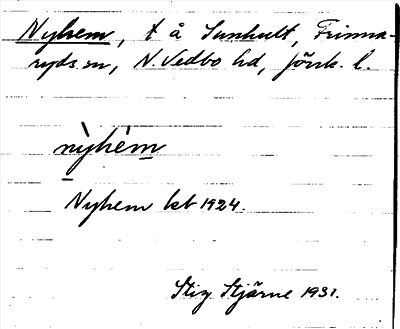 Nyhem, t å Sunhult, Frinna-
ryds sn, N. Vedbo hd, Jönk. l.
nỳhém
Nyhem kbt 1924.
Stig Stjärne 1931.